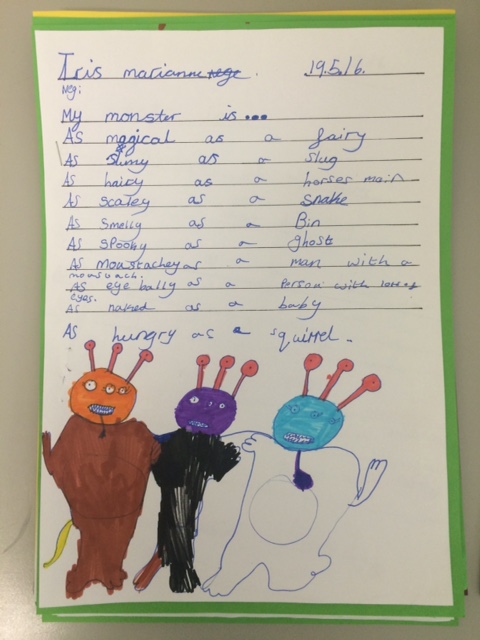 Iris marianne 19.5.16.
My monster is...
As magical as a fairy
As Slimy as a slug
As hairy as a horses main
As scaley as a snake
As Smelly as a Bin
As spooky as a ghost
As moustachey as a man with a
As eye bally as a Person with lots of
eyes.
As naked as a baby
As hungry as a squirrel.